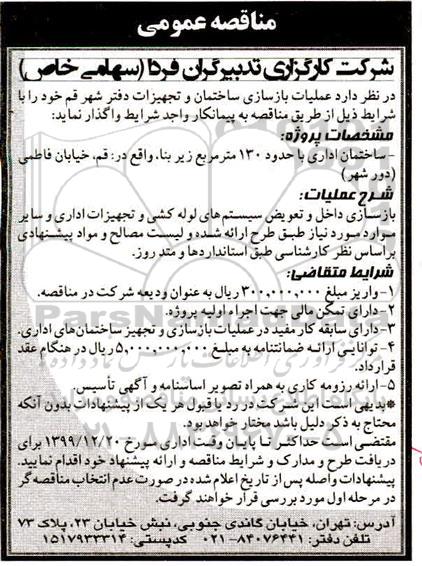 مناقصه عمومی
شرکت کارگزاری تدبیرگران فردا (سهامی خاص)
در نظر دارد عملیات بازسازی ساختمان و تجهیزات دفتر شهر قم خود را با
شرایط ذیل از طریق مناقصه به پیمانکار واجد شرایط واگذار نماید:
مشخصات پروژه:
- ساختمان اداری با حدود ۱۳۰ مترمربع زیر بنا، واقع در: قم، خیابان فاطمی
(دور شهر)
شرح عملیات:
بازسازی داخل و تعویض سیستم‌های لوله کشی و تجهیزات اداری و سایر
موارد مورد نیاز طبق طرح ارائه شده و لیست مصالح و مواد پیشنهادی
براساس نظر کارشناسی طبق استانداردها و متد روز.
شرایط متقاضی:
۱- واریز مبلغ ۳۰۰,۰۰۰,۰۰۰ ریال به عنوان ودیعه شرکت در مناقصه.
۲- دارای تمکن مالی جهت اجراء اولیه پروژه.
۳- دارای سابقه کار مفید در عملیات بازسازی و تجهیز ساختمان‌های اداری.
۴- توانایی ارائه ضمانتنامه به مبلغ ۵,۰۰۰,۰۰۰,۰۰۰ ریال در هنگام عقد
قرارداد.
۵- ارائه رزومه کاری به همراه تصویر اساسنامه و آگهی تأسیس.
*بدیهی است این شرکت در رد یا قبول هر یک از پیشنهادات بدون آنکه
محتاج به ذکر دلیل باشد مختار خواهد بود.
مقتضی است حداکثر تا پایان وقت اداری مورخ ۱۳۹۹/۱۲/۲۰ برای
دریافت طرح و مدارک و شرایط مناقصه و ارائه پیشنهاد خود اقدام نمایید.
پیشنهادات واصله پس از تاریخ اعلام شده در صورت عدم انتخاب مناقصه‌گر
در مرحله اول مورد بررسی قرار خواهند گرفت.
آدرس: تهران، خیابان گاندی جنوبی، نبش خیابان ۲۳، پلاک ۷۳
تلفن دفتر: ۸۴۰۷۶۴۴۱-۰۲۱ کدپستی: ۱۵۱۷۹۳۳۳۱۴